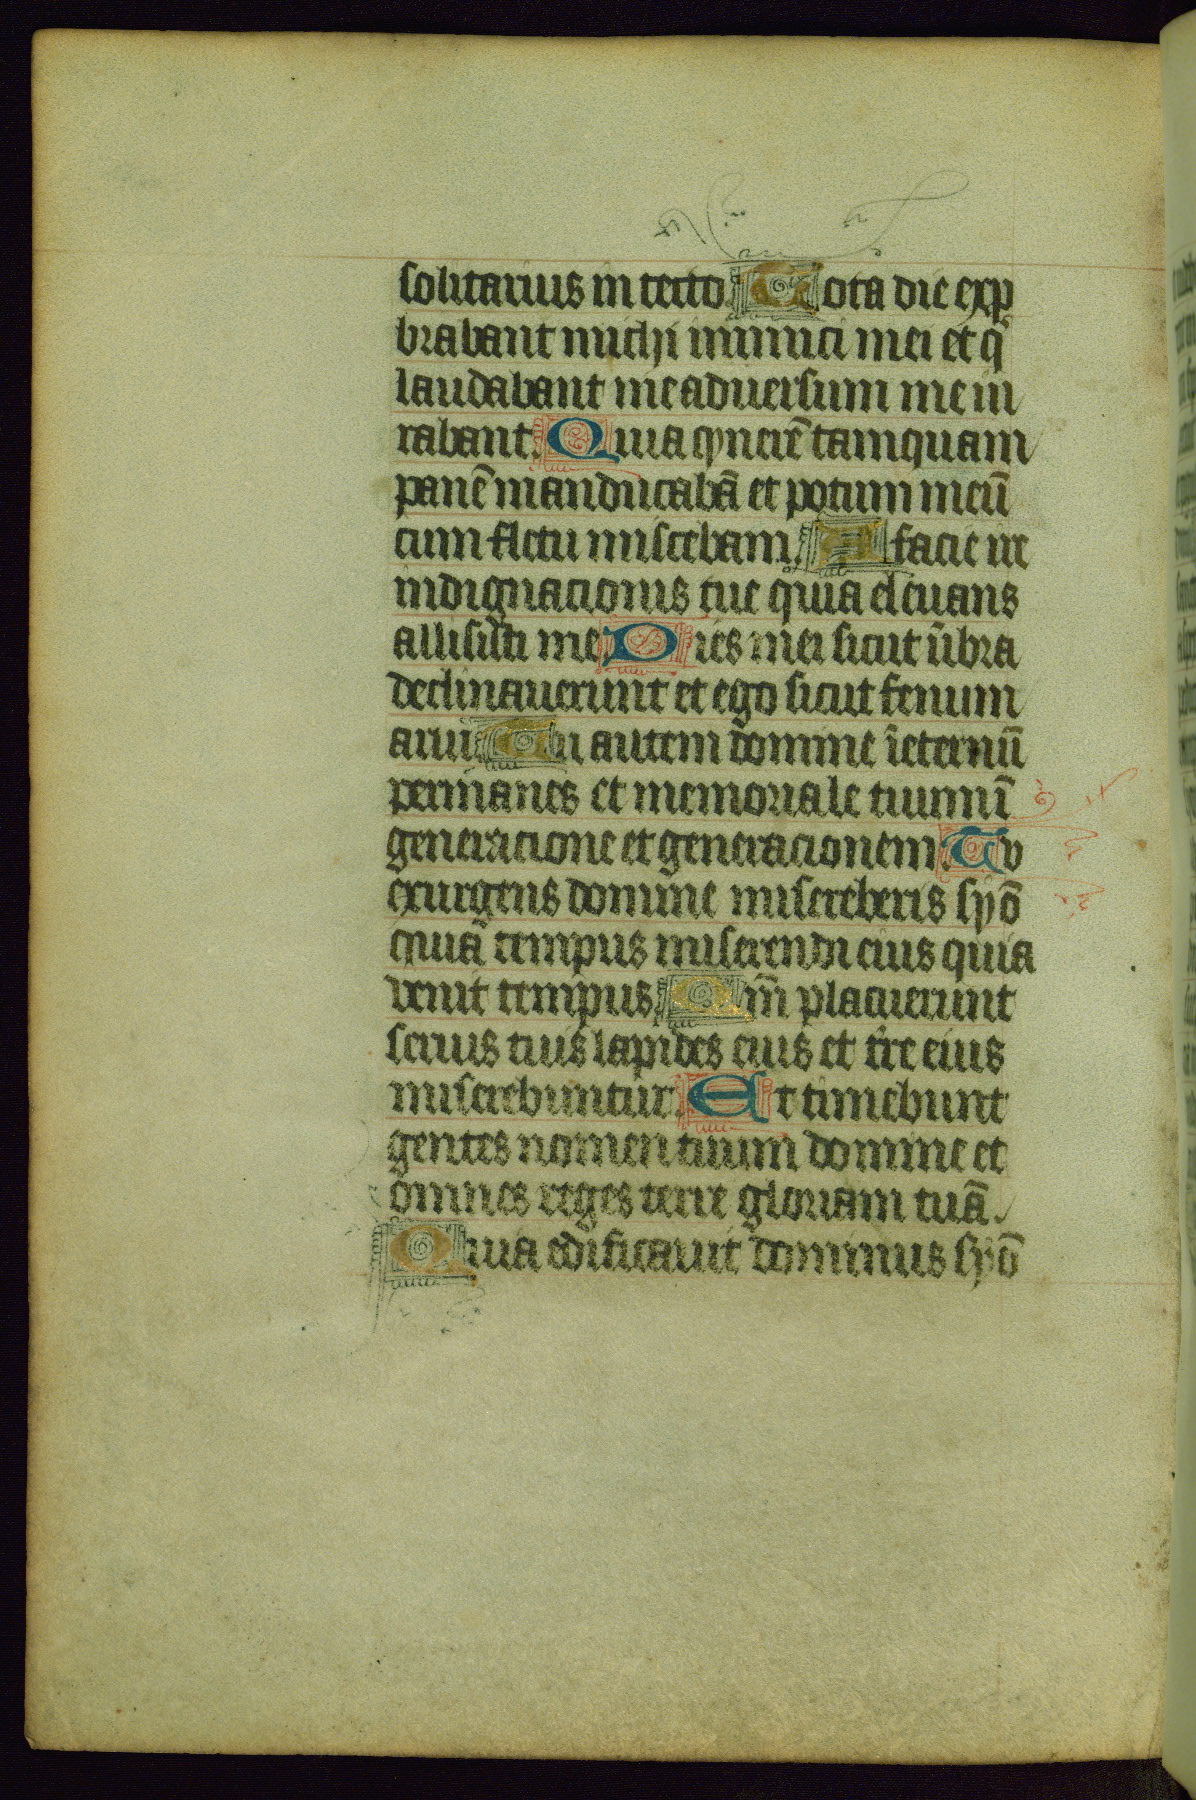 solitarius in tecto. Tota die exp
brabant michi inimici mei et q̄
laudabant me aduersum me iu
rabant. Quia cynerē tamquam
panē manducabā et potum meū
cum fletu miscebam. A facie ire
indignacionis tue quia eleuans
allisisti me. Dies mei sicut ūbra
declinauerunt et ego sicut fenum
arui. Tu autem domine ī eternū
permanes et memoriale tuum ī
generacione et generacionem. Tu
exurgens domine misereberis syō
quiā tempus miserendi eius quia
venit tempus. Qm̄ placuerunt
seruis tuis lapides eius et t̄re eius
miserebuntur. Et timebunt
gentes nomen tuum domine et
omnes reges terre gloriam tuā.
Quia edificauit dominus syō